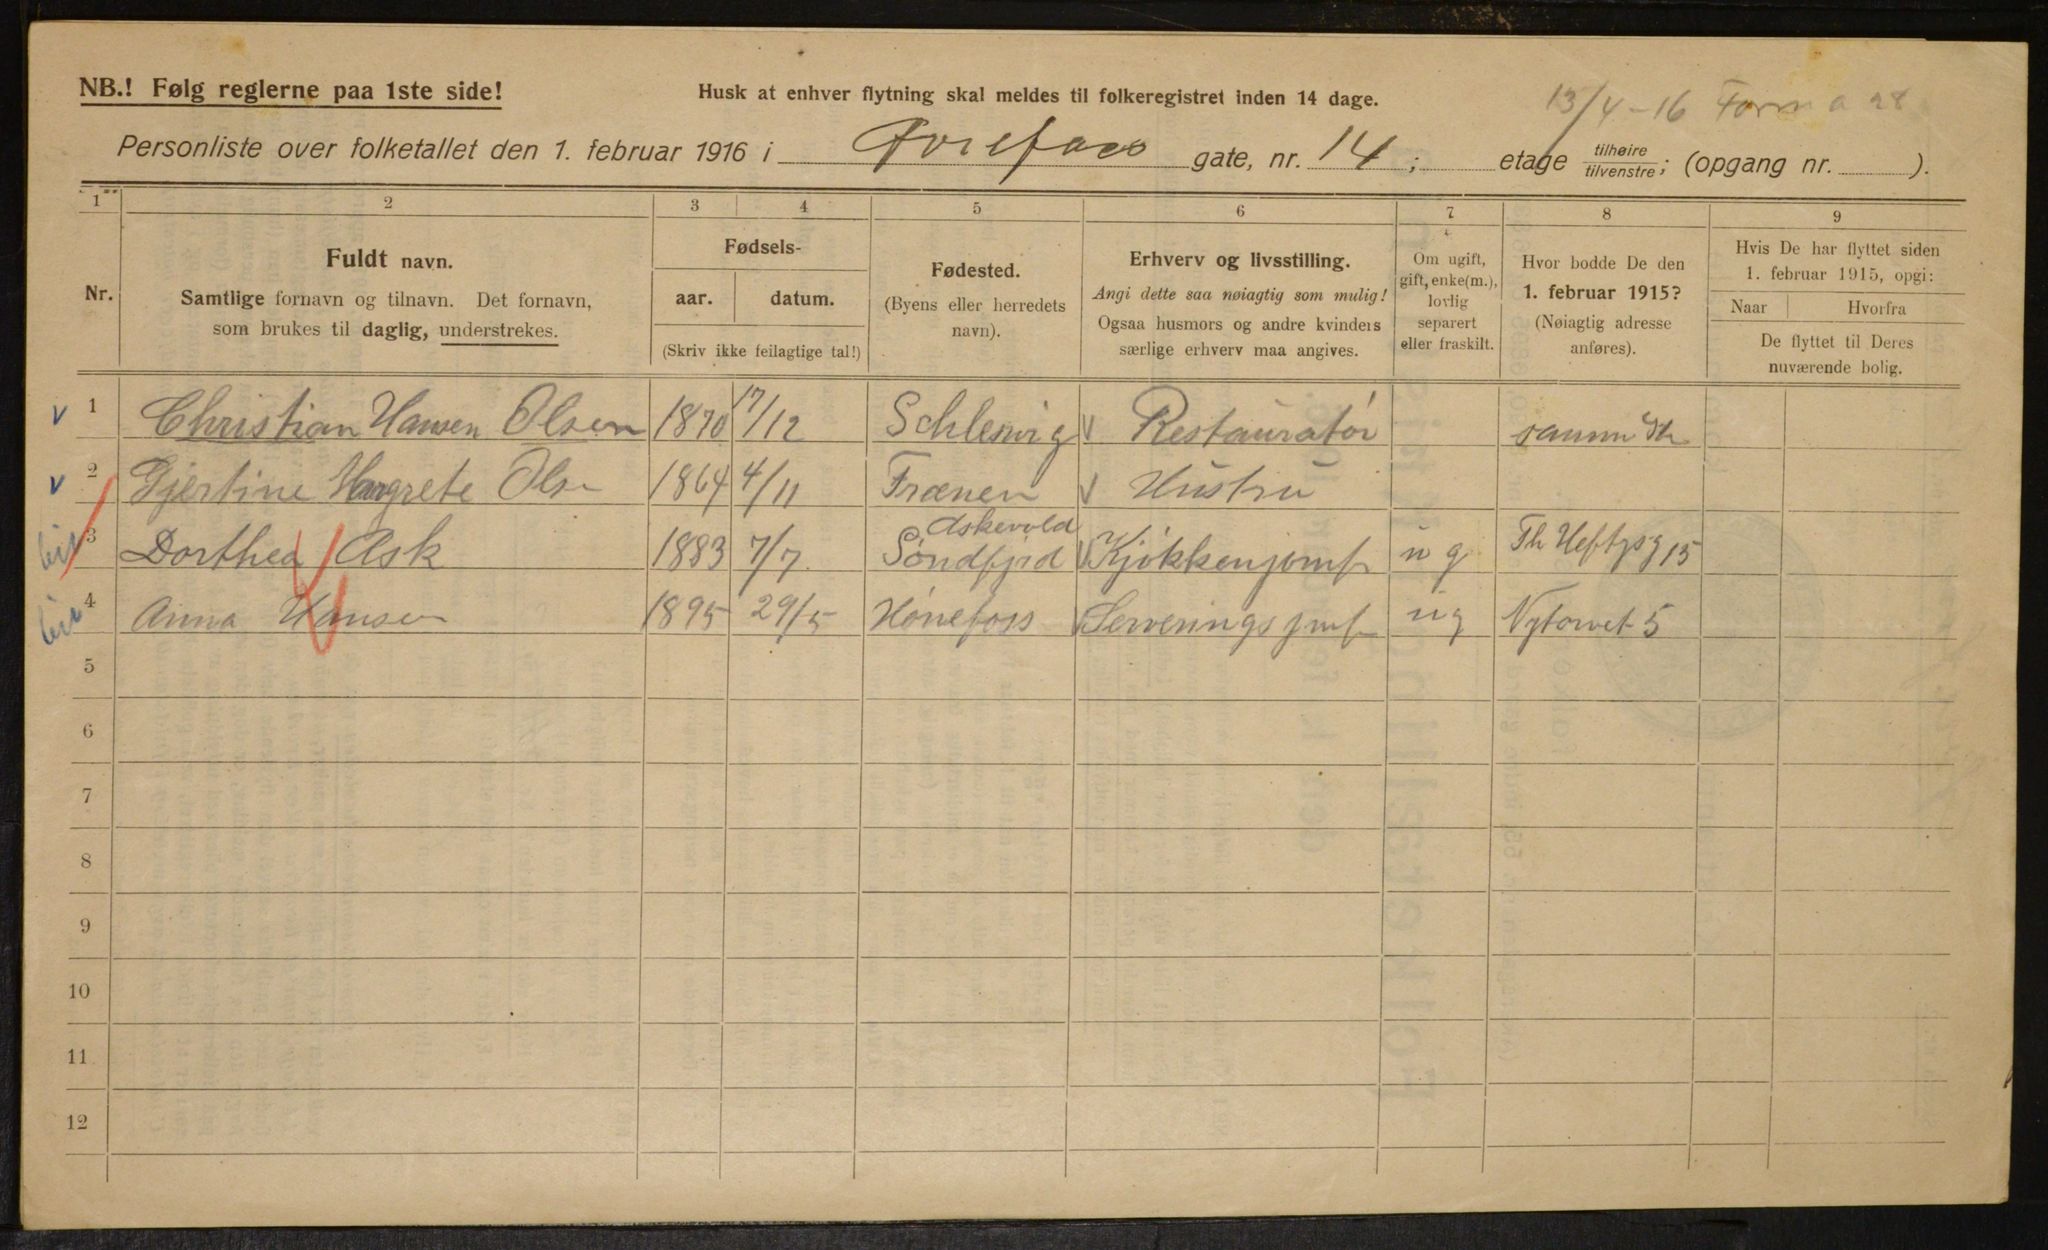 NB.! Følg reglerne paa 1ste side!
Husk at enhver flytning skal meldes til folkeregistret inden 14 dage.
13/4-16 Form a 28
Personliste over folketallet den 1. februar 1916 i Øvrefoss gate, nr. 14; etage tilhøire/tilvenstre; (opgang nr. ).
1 2 3 4 5 6 7 8 9
Nr.
Fuldt navn.
Samtlige fornavn og tilnavn. Det fornavn,
som brukes til daglig, understrekes.
Fødsels-
aar. datum.
(Skriv ikke feilagtige tal!)
Fødested.
(Byens eller herredets
navn).
Erhverv og livsstilling.
Angi dette saa nøiagtig som mulig!
Ogsaa husmors og andre kvinders
særlige erhverv maa angives.
Om ugift,
gift, enke(m.),
lovlig
separert
eller fraskilt.
Hvor bodde De den
1. februar 1915?
(Nøiagtig adresse
anføres).
Hvis De har flyttet siden
1. februar 1915, opgi:
Naar Hvorfra
De flyttet til Deres
nuværende bolig.
v 1 Christian Hansen Olsen 1870 17/12 Schleswig v Restauratør samme St
v 2 Gjertine Margrete Olse 1864 4/11 Frænen v Hustru
Askevold
3 Dorthea Ask 1883 7/7 Søndfjrd v Kjøkkenjomf u g Th Heftysg 15
4 Anna Hansen 1895 29/5 Hønefoss v Serveringsjmf ug Nytorvet 5
5
6
7
8
9
10
11
12